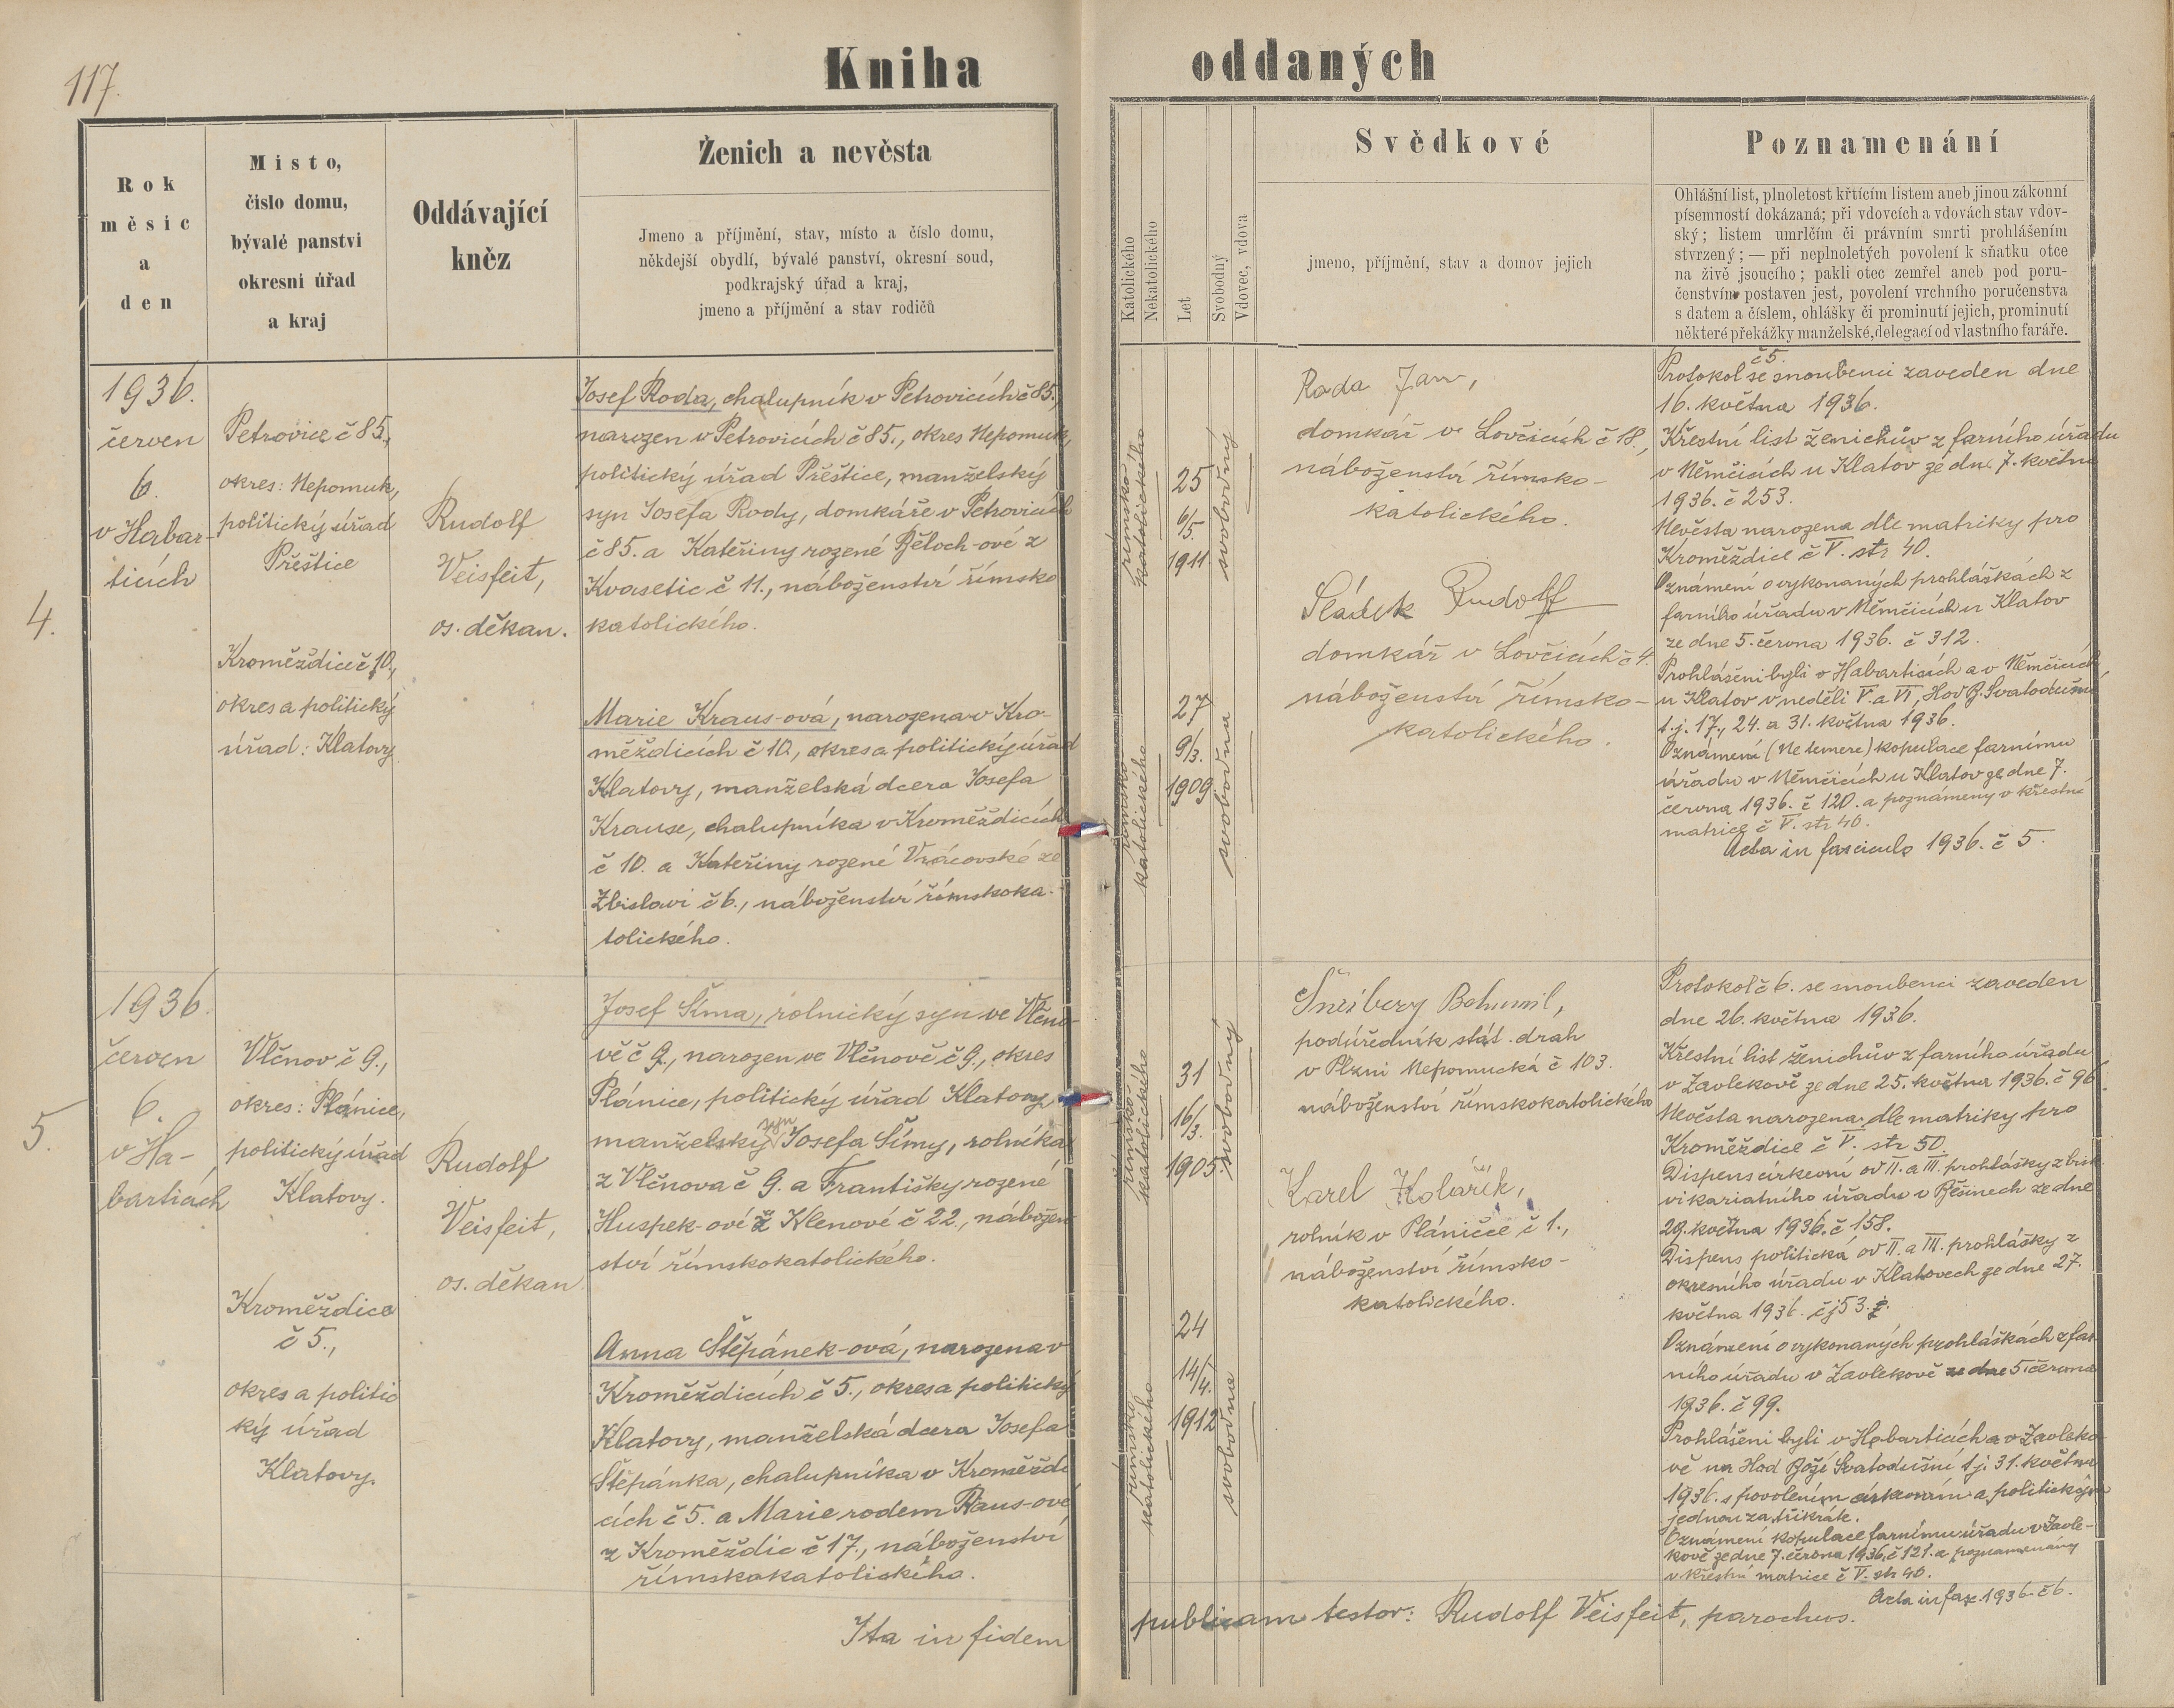 117.
Kniha oddaných
Rok
měsíc
a
den
Místo,
číslo domu,
bývalé panství
okresní úřad
a kraj
Oddávající
kněz
Ženich a nevěsta
Jmeno a příjmění, stav, místo a číslo domu,
někdejší obydlí, bývalé panství, okresní soud,
podkrajský úřad a kraj,
jmeno a příjmění a stav rodičů
Katolického
Nekatolického
Let
Svobodný
Vdovec, vdova
Svědkové
jmeno, příjmění, stav a domov jejich
Poznamenání
Ohlášní list, plnoletost křtícím listem aneb jinou zákonní
písemností dokázaná; při vdovcích a vdovách stav vdov-
ský; listem umrlčím či právním smrti prohlášením
stvrzený; — při neplnoletých povolení k sňatku otce
na živě jsoucího; pakli otec zemřel aneb pod poru-
čenstvím postaven jest, povolení vrchního poručenstva
s datem a číslem, ohlášky či prominutí jejich, prominutí
některé překážky manželské, delegací od vlastního faráře.
4.
1936.
červen
6.
v Habar-
ticích
Petrovice č 85.,
okres: Nepomuk,
politický úřad
Přeštice
Kroměždice č 10.,
okres a politický
úřad: Klatovy
Rudolf
Veisfeit,
os. děkan.
Josef Roda, chalupník v Petrovicích č 85.,
narozen v Petrovicích č 85., okres Nepomuk,
politický úřad Přeštice, manželský
syn Josefa Rody, domkáře v Petrovicích
č 85. a Kateřiny rozené Běloch-ové z
Kvasetic č 11., náboženství římsko
katolického.
Marie Kraus-ová, narozena v Kro-
měždicích č 10., okres a politický úřad
Klatovy, manželská dcera Josefa
Krause, chalupníka v Kroměždicích
č 10. a Kateřiny rozené Vrácovské ze
Zbislavi č 6., náboženství římskoka-
tolického.
římsko
katolického
25
6/5.
1911.
svobodný
římsko
katolického
27
9/3.
1909.
svobodna
Roda Jan,
domkář v Lovčicích č 18.,
náboženství římsko-
katolického.
Sládek Rudolf
domkář v Lovčicích č 4.
náboženství římsko-
katolického.
č 5.
Protokol se snoubenci zaveden dne
16. května 1936.
Křestní list ženichův z farního úřadu
v Němčicích u Klatov ze dne 7. května
1936. č 253.
Nevěsta narozena dle matriky pro
Kroměždice č V. str 40.
Oznámení o vykonaných prohláškách z
farního úřadu v Němčicích u Klatov
ze dne 5. června 1936. č 312.
Prohlášeni byli v Habarticích a v Němčicích
u Klatov v neděli V. a VI, Hod B. Svatodušní
t.j. 17., 24. a 31. května 1936.
Oznámení (Ne temere) kopulace farnímu
úřadu v Němčicích u Klatov ze dne 7.
června 1936. č 120. a poznámeny v křestní
matrice č V. str 40.
Acta in fasciculo 1936. č 5.
5.
1936.
červen
6.
v Ha-
barticích
Vlčnov č 9.,
okres: Plánice,
politický úřad
Klatovy.
Kroměždice
č 5.,
okres a politic
ký úřad
Klatovy.
Rudolf
Veisfeit,
os. děkan
Josef Šíma, rolnický syn ve Vlčno-
vě č 9., narozen ve Vlčnově č 9., okres
Plánice, politický úřad Klatovy
manželský syn Josefa Šímy, rolníka
z Vlčnova č 9. a Františky rozené
Huspek-ové z Klenové č 22., nábožen-
ství římskokatolického.
Anna Štěpánek-ová, narozena v
Kroměždicích č 5., okres a politický
Klatovy, manželská dcera Josefa
Štěpánka, chalupníka v Kroměždi
cích č 5. a Marie rodem Kraus-ové
z Kroměždic č 17., náboženství
římskokatolického.
římsko
katolického
31
16/3.
1905
svobodný
římsko
katolického
24
14/4.
1912
svobodna
Bohumil,
podúředník stát. drah
v Plzni Nepomucká č 103.
náboženství římskokatolického
Karel Kolářík,
rolník v Pláničce č 1.,
náboženství římsko-
katolického.
Protokol č 6. se snoubenci zaveden
dne 26. května 1936.
Křestní list ženichův z farního úřadu
v Zavlekově ze dne 25. května 1936. č 96.
Nevěsta narozena dle matriky pro
Kroměždice č V. str 50.
Dispens církevní od II. a III. prohlášky z bisk.
vikariatního úřadu v Běšinech ze dne
29. května 1936. č 158.
Dispens politická od II. a III. prohlášky z
okresního úřadu v Klatovech ze dne 27.
května 1936. čj 53.
Oznámení o vykonaných prohláškách z far-
ního úřadu v Zavlekově ze dne 5. června
1936. č 99.
Prohlášeni byli v Habarticích a v Zavleko-
vě na Hod Boží Svatodušní t.j. 31. května
1936. s povolením církevním a politickým
jednou za třikráte.
Oznámení kopulace farnímu úřadu v Zavle-
kově ze dne 7. června 1936. č 121. a poznamenány
v křestní matrice č V. str 40.
Acta in fax. 1936. č 6.
Ita in fidem publicam testor: Rudolf Veisfeit, parochus.